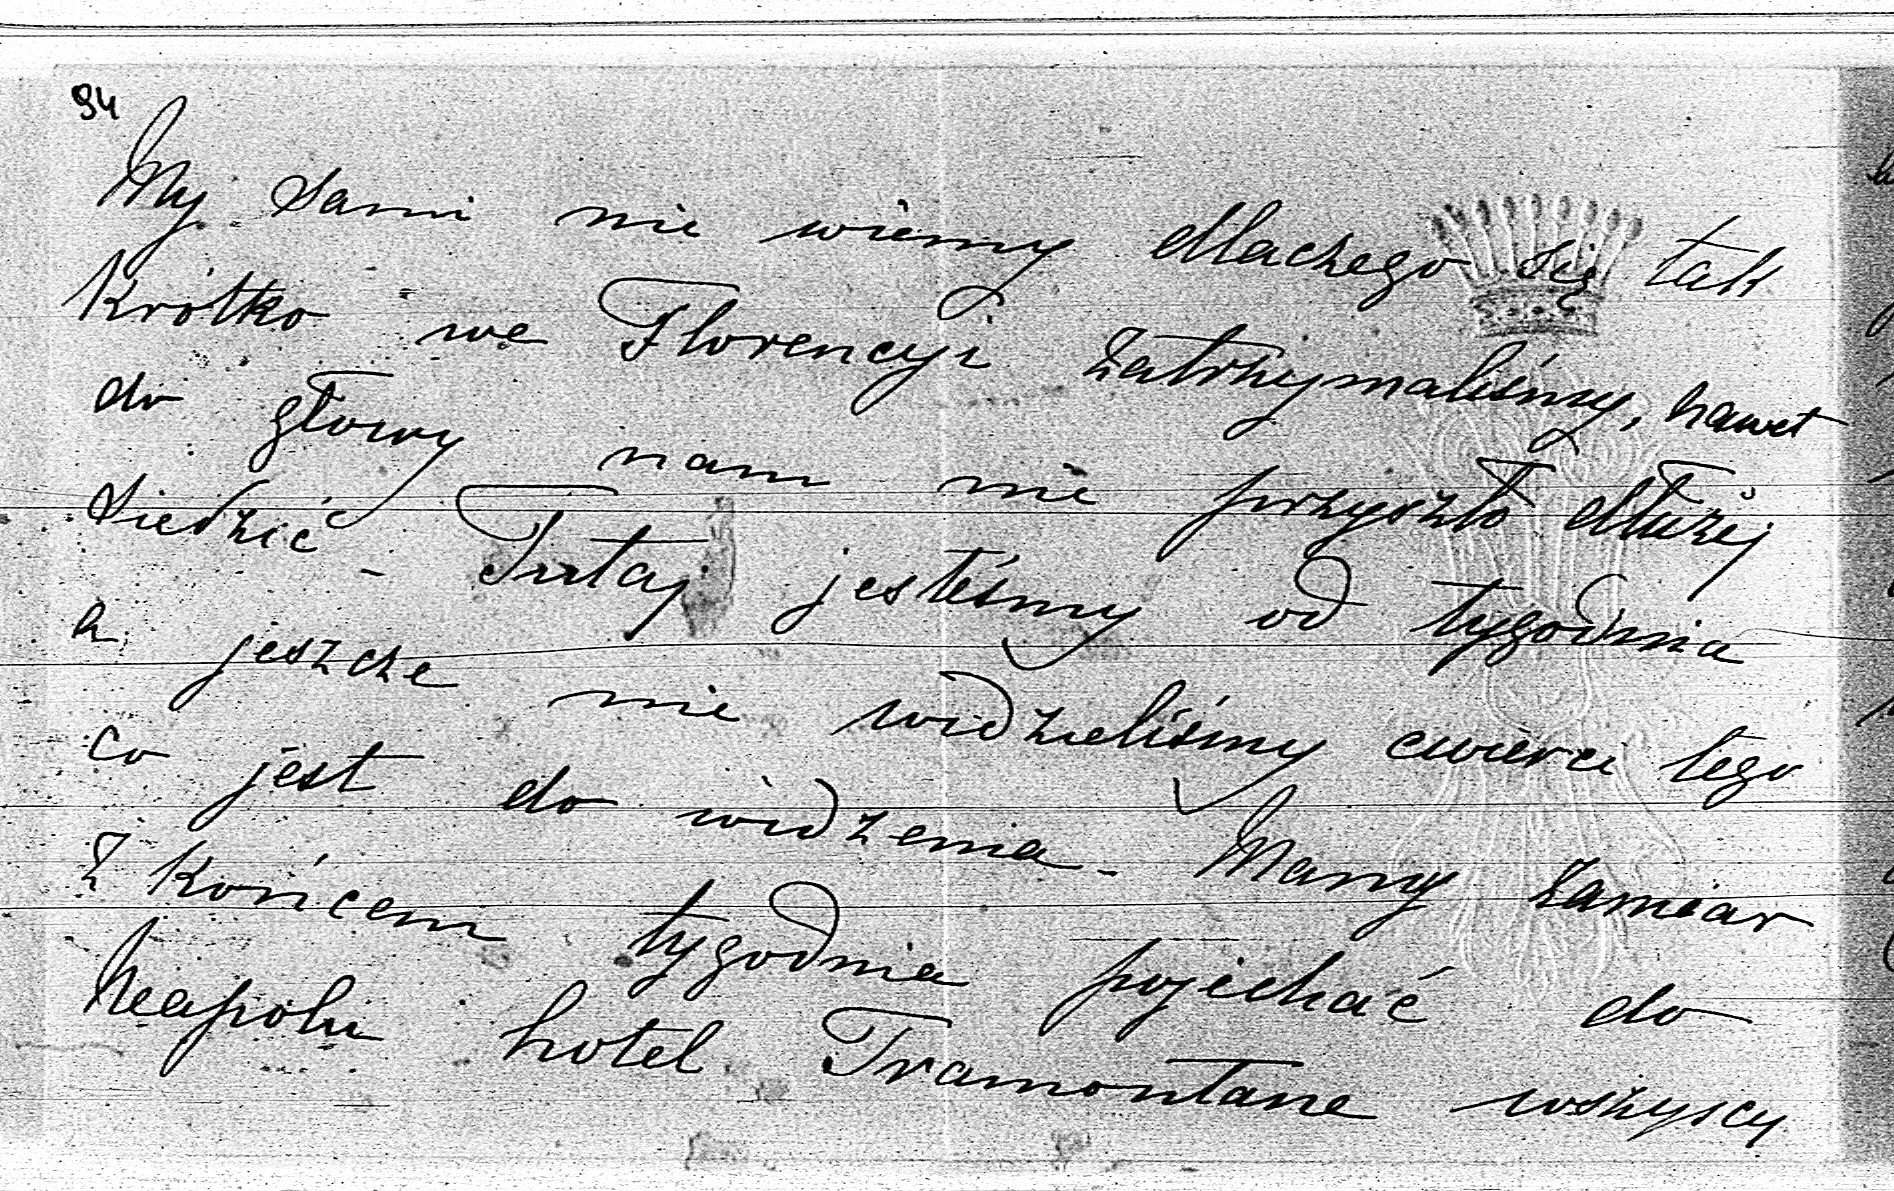 94
My sami nie wiemy dlaczego się tak
krótko we Florencyi zatrzymaliśmy, nawet
do głowy nam nie przyszło dłużej
siedzić - Tutaj jesteśmy od tygodnia
a jeszcze nie widzieliśmy cwierci tego
co jest do widzenia - Mamy zamiar
z końcem tygodnia pojechać do
Neapolu hotel Tramontane wszyscy